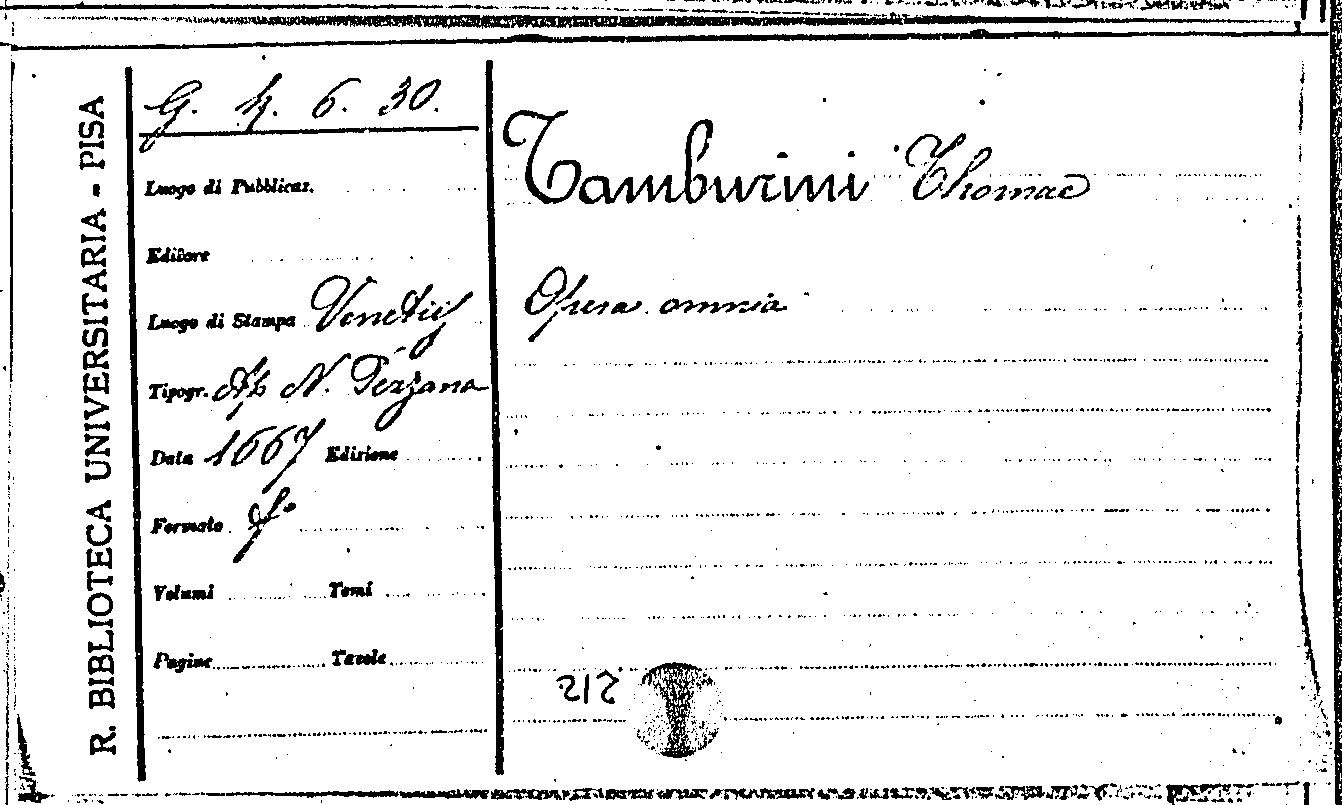 R. BIBLIOTECA UNIVERSITARIA - PISA
G. 4. 6. 30.
Luogo di Pubblicaz.
Editore
Luogo di Stampa Venetiis
Tipogr. Ap N. Pezzana
Data 1667 Edizione
Formato f°
Volumi Tomi
Pagine Tavole
Tamburini Thomae
Opera omnia
212